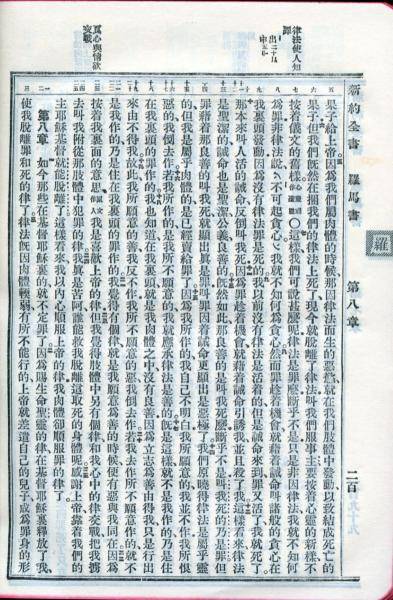 新約全書 羅馬書 第八章 二百
羅
律法使人知
罪
爲心與情欲
交戰
果子給上帝因爲我們屬肉體的時候那因律法而生的惡慾就在我們肢體中發動以致結成死亡的
果子但我們旣然在捆我們的律法上死了現今就脫離了律法叫我們服事主要按着心靈的新樣不
按着儀文的舊樣○這樣我們可說甚麼呢律法是罪麼斷乎不是只是非因律法我就不知何
爲罪非律法說不可起貪心我就不知何爲貪心然而罪趁着機會就藉着誡命叫諸般的貪心在
我裏頭發動因爲沒有律法罪是死的我以前沒有律法是活着的但是誡命來到罪又活了我就死了
那本來叫人活的誡命反倒叫我死因爲罪趁着機會就藉着誡命引誘我並且殺了我這樣看來律法
是聖潔的誡命也是聖潔公義良善的旣然如此那良善的是叫我死麼斷乎不是叫我死的乃是罪但
罪藉着那良善的叫我死就顯出眞是罪叫罪因着誡命更顯出是惡極了我們原曉得律法是屬乎靈
的但我是屬乎肉體的是已經賣給罪了因爲我所作的我自己不明白我所願意的我並不作我所恨
惡的我倒去作若我所作的是我所不願意的我就應承律法是善的旣是這樣就不是我作的乃是住
在我裏頭的罪作的我也知道在我裏頭就是我肉體之中沒有良善因爲立志爲善由得我只是行出
來由不得我故此我所願意的善我反不作我所不願意的惡我倒去作若我去作所不願意作的就不
是我作的乃是住在我裏頭的罪作的我覺得有個律就是我願意爲善的時候便有惡與我同在因爲
按着我裏面的意思原文作人我是喜歡上帝的律但我覺得肢體中另有個律和我心中的律交戰把我擄
去叫我附從那肢體中犯罪的律我眞是苦阿誰能救我脫離這取死的身體呢感謝上帝靠着我們的
主耶穌基督就能脫離了這樣看來我以內心順服上帝的律我肉體卻順服罪的律了
第八章 如今那些在基督耶穌裏的就不定罪了因爲賜生命聖靈的律在基督耶穌裏釋放了我
使我脫離罪和死的律了律法旣因肉體輭弱有所不能行的上帝就差遣自己的兒子成爲罪身的形